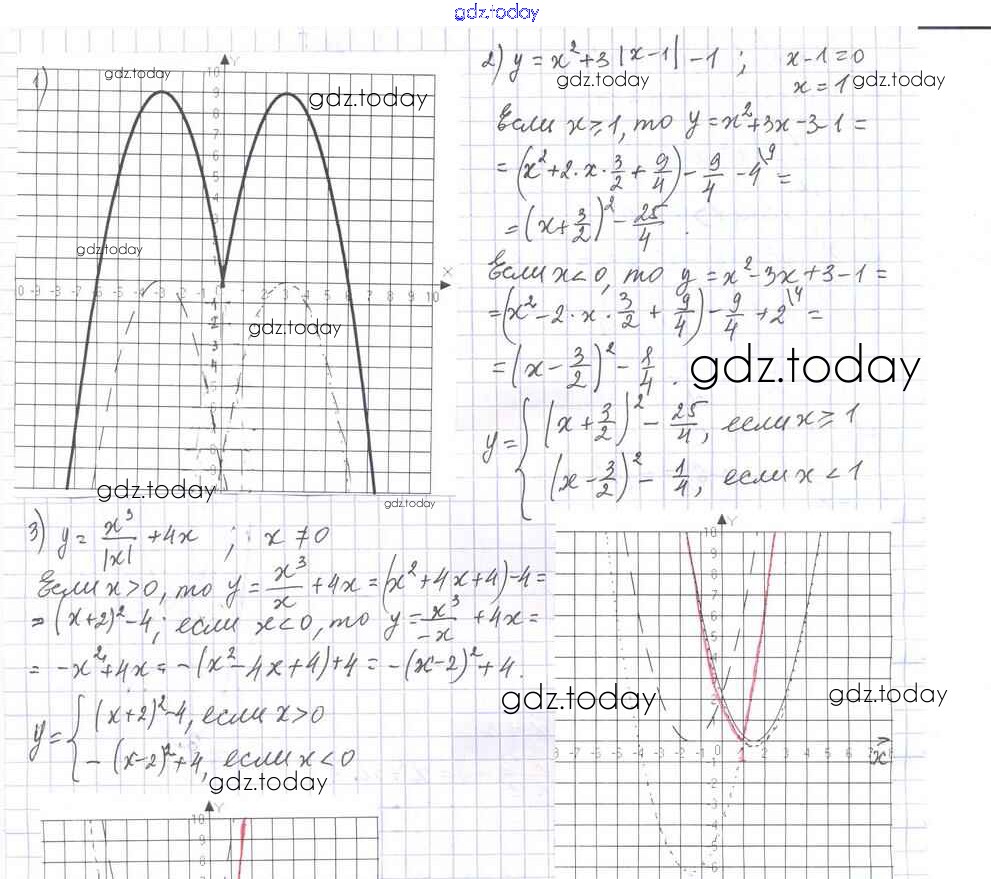 gdz.today
1)
gdz.today
gdz.today
gdz.today
gdz.today
gdz.today
gdz.today
2) y = x² + 3|x-1| - 1 ; x-1=0
x = 1
gdz.today
gdz.today
Если x ≥ 1, то y = x² + 3x - 3 - 1 =
= (x² + 2·x·3/2 + 9/4) - 9/4 - 4\9 =
= (x + 3/2)² - 25/4 .
Если x < 0, то y = x² - 3x + 3 - 1 =
= (x² - 2·x·3/2 + 9/4) - 9/4 + 2\4 =
= (x - 3/2)² - 8/4 .
gdz.today
y = { (x + 3/2)² - 25/4, если x ≥ 1
(x - 3/2)² - 1/4, если x < 1
3) y = x³/|x| + 4x ; x ≠ 0
Если x > 0, то y = x³/x + 4x = (x² + 4x + 4) - 4 =
= (x+2)² - 4; если x < 0, то y = x³/-x + 4x =
= -x² + 4x = -(x² - 4x + 4) + 4 = -(x-2)² + 4.
y = { (x+2)² - 4, если x > 0
-(x-2)² + 4, если x < 0
gdz.today
gdz.today
gdz.today